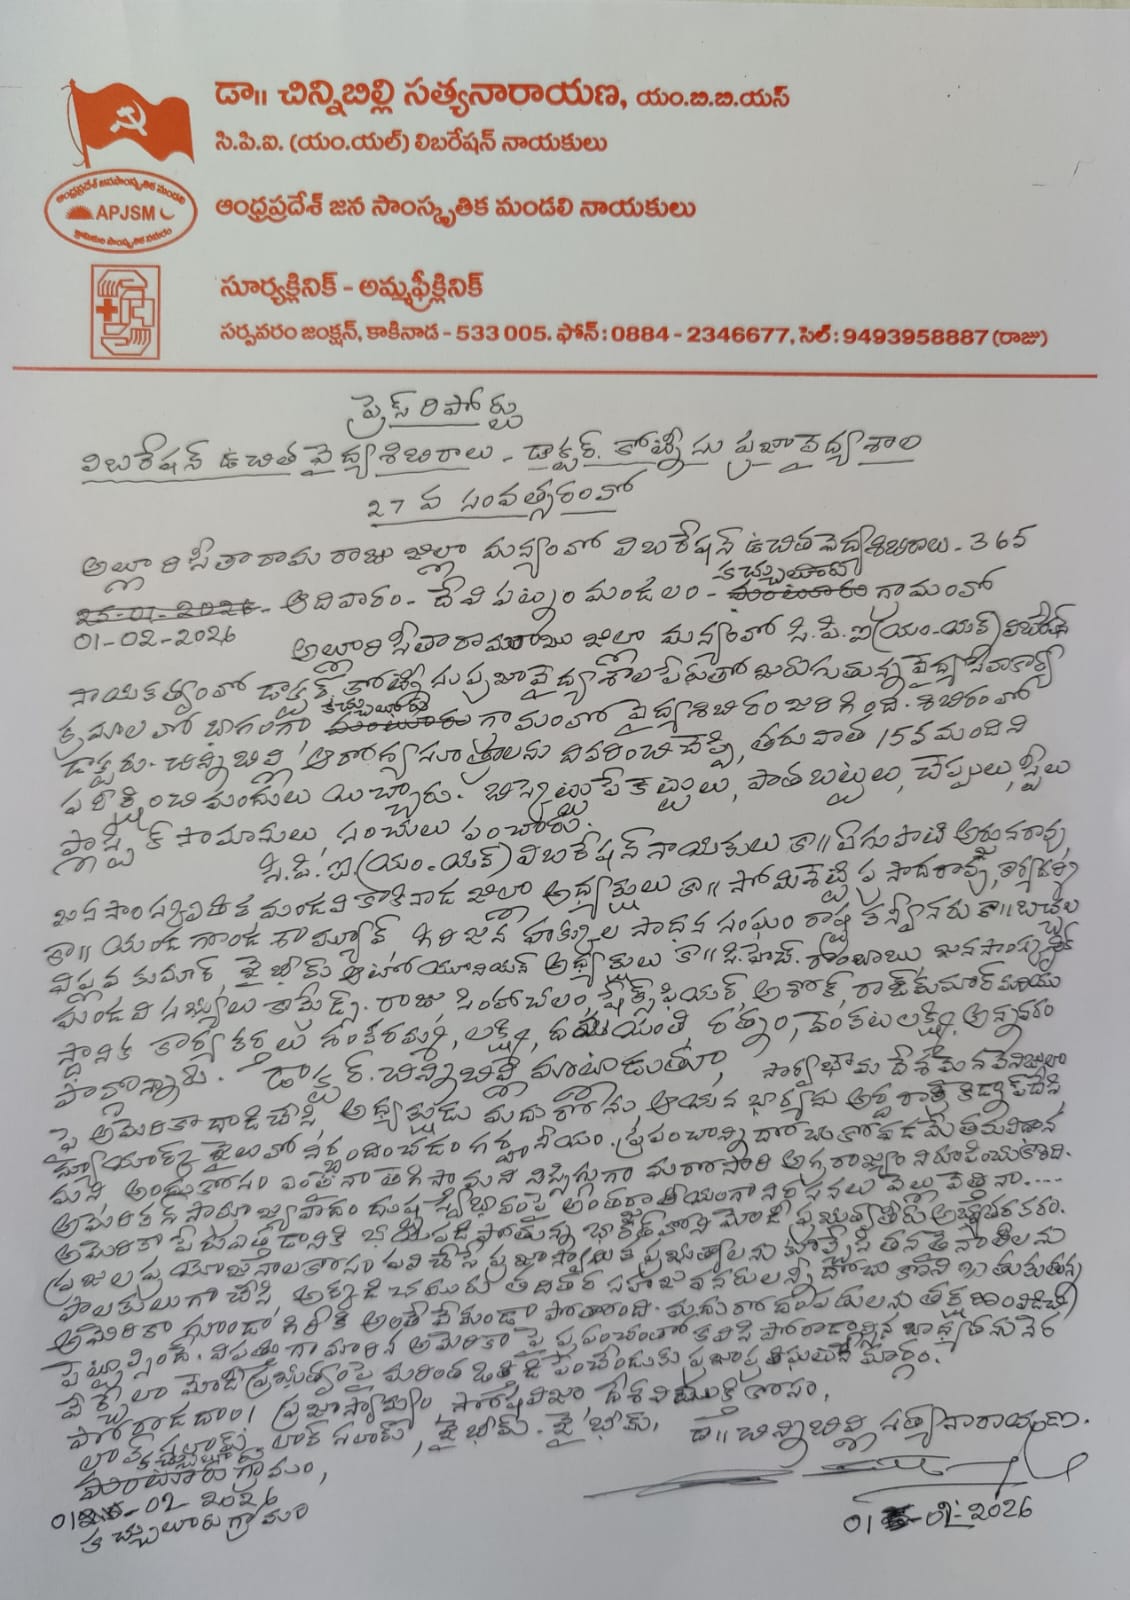 డా॥ చిన్నిబిల్లి సత్యనారాయణ, యం.బి.బి.యస్
సి.పి.ఐ. (యం.యల్) లిబరేషన్ నాయకులు
ఆంధ్రప్రదేశ్ జనసాంస్కృతిక మండలి
APJSM
ఆంధ్రప్రదేశ్ జన సాంస్కృతిక మండలి నాయకులు
సూర్యక్లినిక్ - అమ్మఫ్రీక్లినిక్
సర్పవరం జంక్షన్, కాకినాడ - 533 005. ఫోన్ : 0884 - 2346677, సెల్ : 9493958887 (రాజు)
ప్రెస్ రిపోర్టు
లిబరేషన్ ఉచిత వైద్యశిబిరాలు - డాక్టర్. కోట్నీసు ప్రజావైద్యశాల
27 వ సంవత్సరంలో
అల్లూరి సీతారామరాజు జిల్లా మన్యంలో లిబరేషన్ ఉచిత వైద్యశిబిరాలు - 365
కచ్చులూరు
ఆదివారం - దేవిపట్నం మండలం - గ్రామంలో
01-02-2026 అల్లూరి సీతారామరాజు జిల్లా మన్యంలో సి.పి.ఐ(యం-యల్) లిబరేషన్
నాయకత్వంలో డాక్టర్ కోట్నీసు ప్రజావైద్యశాల పేరుతో జరుగుతున్న వైద్య సేవాకార్య
కచ్చులూరు
క్రమాలలో భాగంగా గ్రామంలో వైద్యశిబిరం జరిగింది. శిబిరంలో
డాక్టరు. చిన్నిబిల్లి ఆరోగ్యసూత్రాలను వివరించి చెప్పి, తరువాత 15వ మందిని
పరీక్షించి మందులు యిచ్చారు. బిస్కెట్టు పేకెట్టులు, పాతబట్టలు, చెప్పులు, స్టీలు
ప్లాస్టిక్ సామానులు, సంచులు పంచారు.
సి.పి.ఐ(యం-యల్) లిబరేషన్ నాయకులు కా॥ ఏగుపాటి అర్జునరావు,
జన మండలి కాకినాడ జిల్లా అధ్యక్షులు కా॥ సోమిశెట్టి ప్రసాదరావు, కార్యదర్శి
కా॥ గిరిజన హక్కుల సాధన సంఘం రాష్ట్ర కన్వీనరు కా॥ బచ్చల
విప్లవ కుమార్, జైభీమ్ ఆటో యూనియన్ అధ్యక్షులు కా॥ సి.హెచ్. రాంబాబు, జనసాంస్కృతిక
మండలి సభ్యులు కామ్రేడ్స్. రాజు, సింహాచలం, అశోక్, రాజ్ కుమార్ మరియు
స్థానిక కార్యకర్తలు శంకరమ్మ, లక్ష్మి, దమయంతి, రత్నం, వెంకటలక్ష్మి, అన్నవరం
పాల్గొన్నారు. డాక్టర్. చిన్నిబిల్లి మాట్లాడుతూ, సార్వభౌమ దేశమైన వెనిజులా
పై అమెరికా దాడిచేసి, అధ్యక్షుడు మదురోను, ఆయన భార్యను అర్ధరాత్రి కిడ్నాప్ చేసి,
న్యూయార్క్ జైలులో నిర్బంధించడం గర్హనీయం. ప్రపంచాన్ని దోచుకోవడమే తమవిధాన
మని అందుకోసం ఎంతకైనా తెగిస్తామని నిస్సిగ్గుగా మరోసారి అగ్రరాజ్యం నిరూపించుకొంది.
అమెరికన్ సామ్రాజ్యవాదం దుష్ట స్వభావంపై అంతర్జాతీయంగా నిరసనలు వెల్లువెత్తినా....
అమెరికా పేరు ఎత్తడానికి భయపడిపోతున్న భారత్ లోని మోడీ ప్రభుత్వతీరు అభ్యంతరకరం.
ప్రజల ప్రయోజనాలకోసం పని చేసే ప్రజాస్వామిక ప్రభుత్వాలను కూల్చేసి తన తైనాతీలను
పాలకులుగా చేసి, అక్కడి చమురు తదితర సహజవనరులన్నీ దోచుకొని బతుకుతున్న
అమెరికా గూండాగిరీకి అంతే లేకుండా పోతోంది. మదురో దంపతులను తక్షణం విడిచి
పెట్టాల్సిందే. విపత్తుగా మారిన అమెరికా పై ప్రపంచంతో కలిసి పోరాడాల్సిన బాధ్యతను నెర
వేర్చేలా మోడీ ప్రభుత్వంపై మరింత ఒత్తిడి పెంచేందుకు ప్రజాప్రతిఘటనే మార్గం.
పోరాడదాం! ప్రజాస్వామ్యం, దేశవిముక్తి కోసం,
లాల్ సలామ్, జైభీమ్. జైభీమ్. డా॥ చిన్నిబిల్లి సత్యనారాయణ.
గ్రామం,
01-02-2026
కచ్చులూరు గ్రామం
01-02-2026